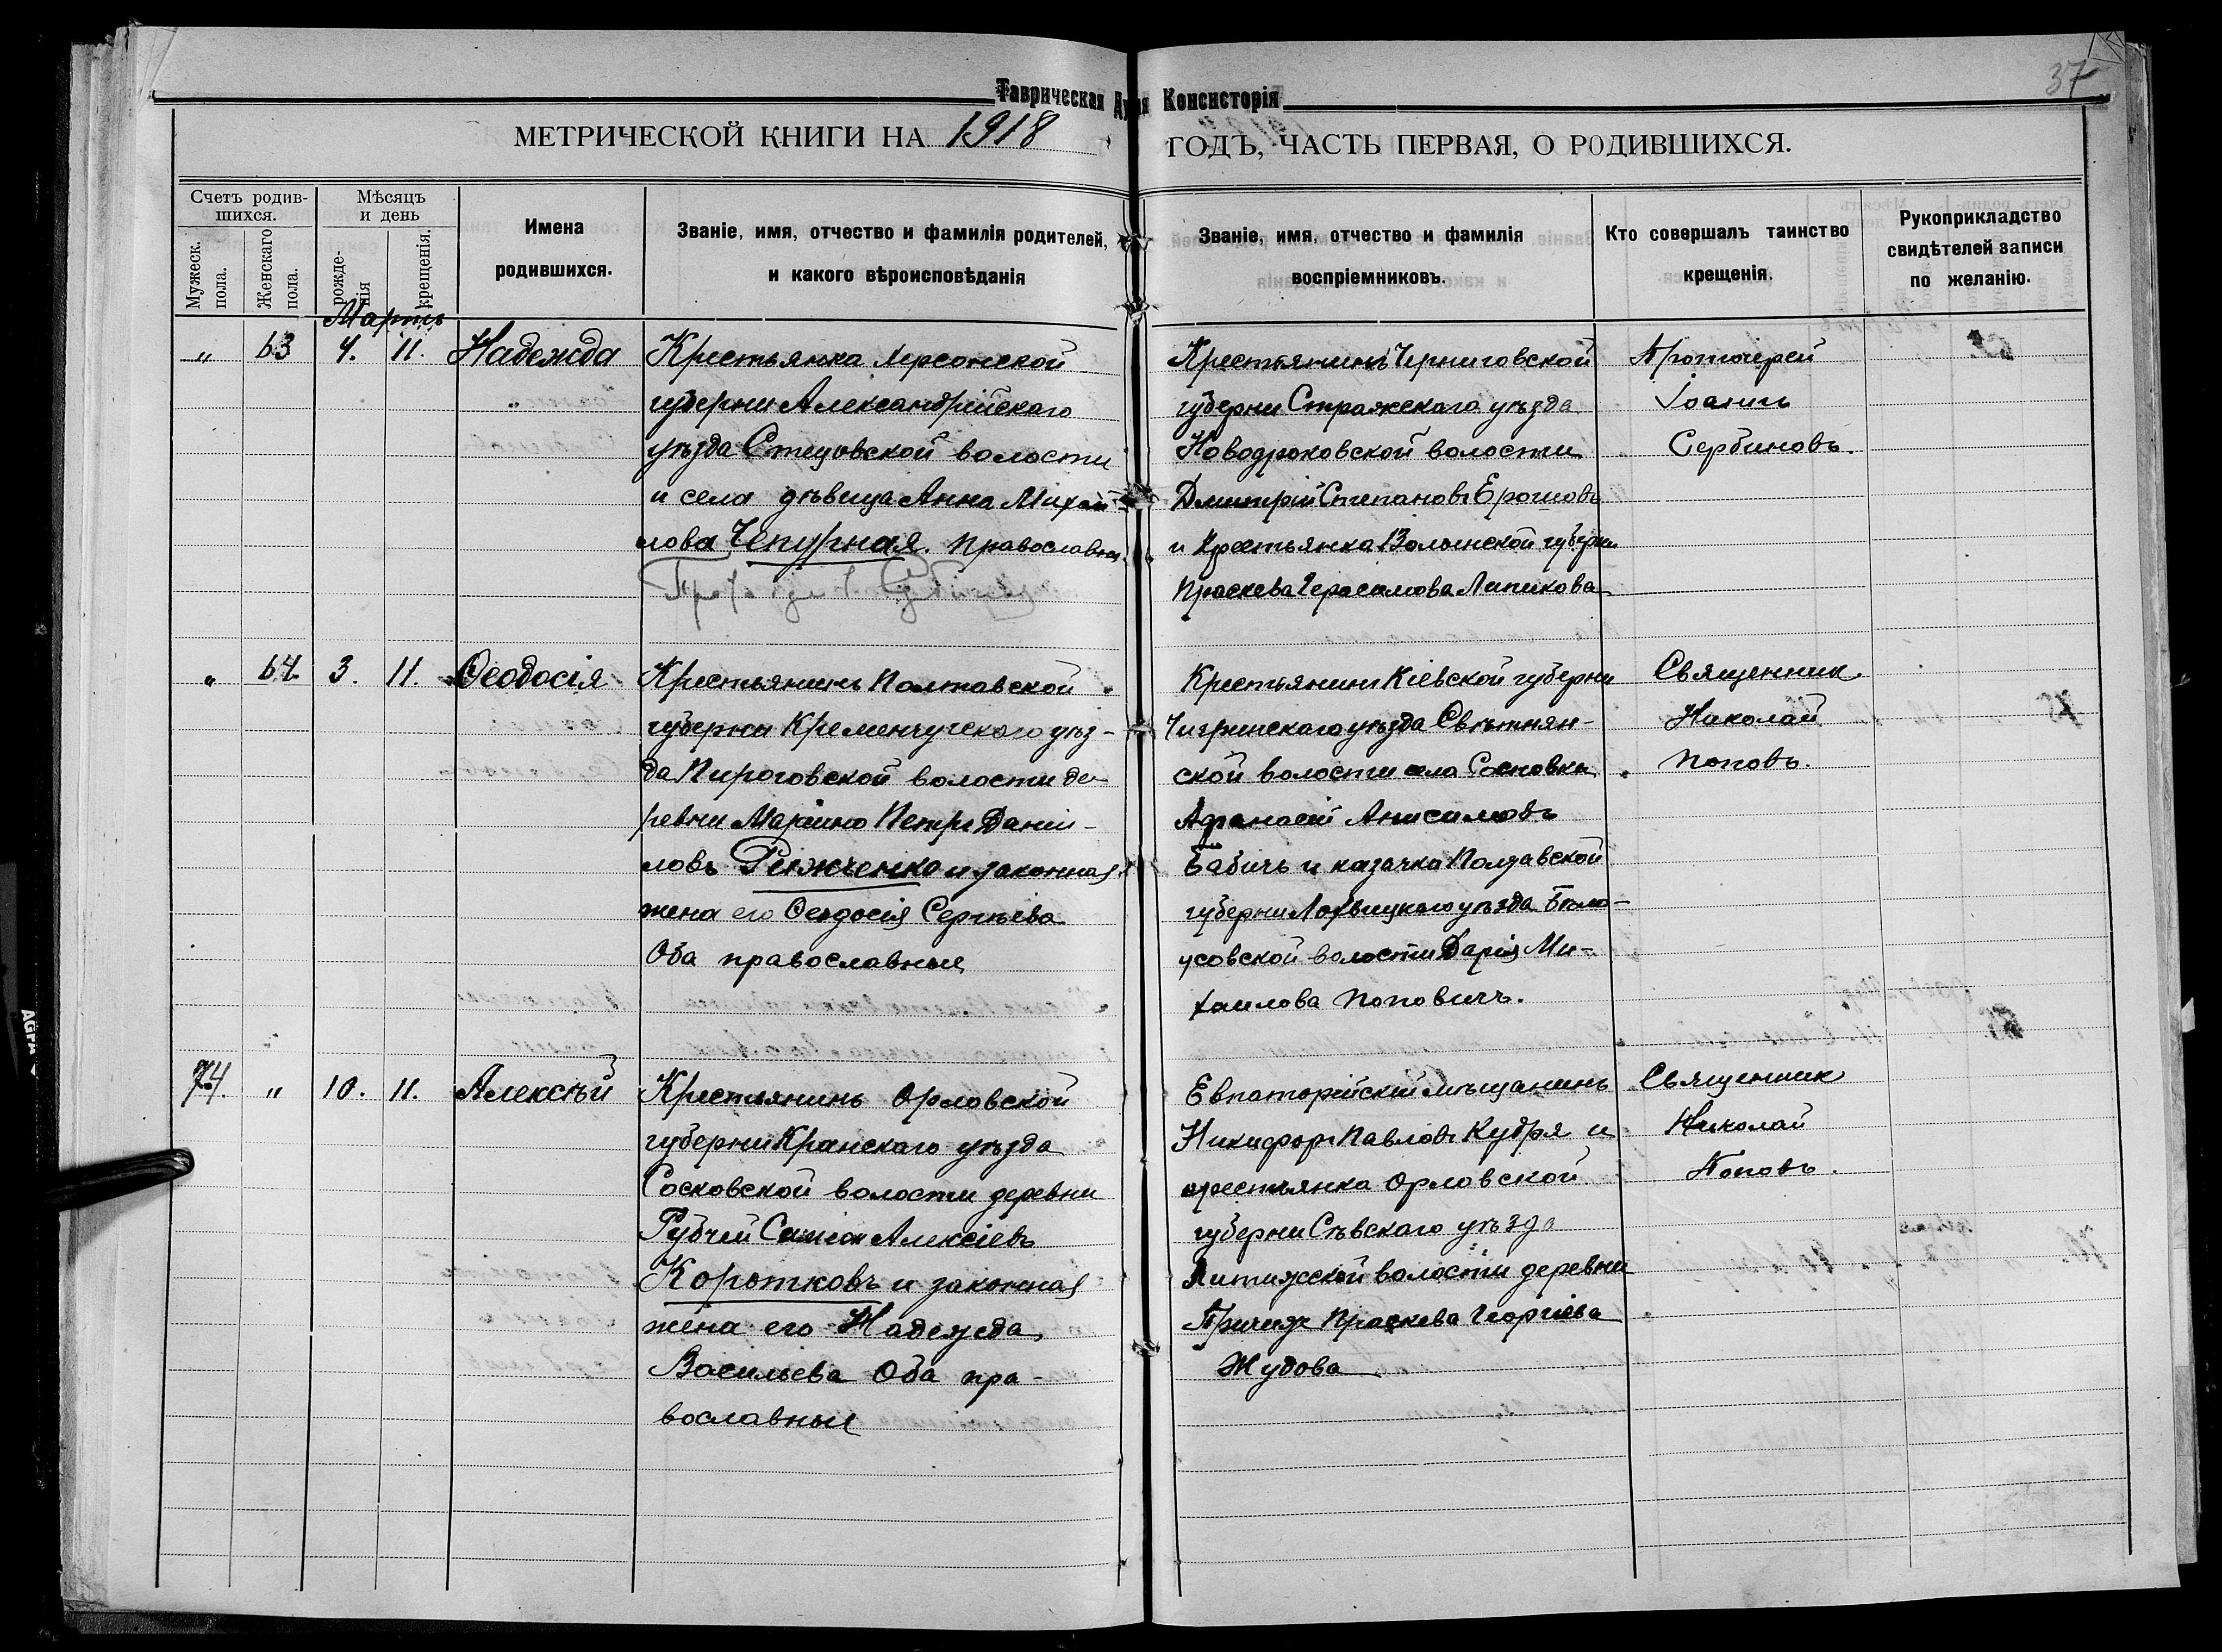 37
Таврическая Дух-ая Консисторія
МЕТРИЧЕСКОЙ КНИГИ НА 1918 ГОДЪ, ЧАСТЬ ПЕРВАЯ, О РОДИВШИХСЯ.
Счетъ родив-
шихся.
Мужеск.
пола.
Женскаго
пола.
Мѣсяцъ
и день
рожде-
нія
крещенія.
Имена
родившихся.
Званіе, имя, отчество и фамилія родителей,
и какого вѣроисповѣданія
Званіе, имя, отчество и фамилія
воспріемниковъ.
Кто совершалъ таинство
крещенія.
Рукоприкладство
свидѣтелей записи
по желанію.
Мартъ
„ 63 4. 11. Надежда
Крестьянка Херсонской
губерніи Александрійскаго
уѣзда Стецовской волости
и села дѣвица Анна Михай-
лова Чепурная. православн.
Крестьянинъ Черниговской
губерніи Стражескаго уѣзда
Новодроковской волости
Дмитрій Степановъ Ерошовъ
и Крестьянка Волынской губерніи
Праскева Герасимова Липикова
Протоіерей
Іоаннъ
Сербиновъ.
„ 64 3. 11. Ѳеодосія
Крестьянинъ Полтавской
губерніи Кременчугскаго уѣз-
да Пироговской волости де-
ревни Марьино Петръ Даніи-
ловъ Рижченко и законная
жена его Ѳеодосія Сергѣева
Оба православные
Крестьянинъ Кіевской губерніи
Чигринскаго уѣзда Свѣтнян-
ской волости села Сосновки
Афанасій Анисимовъ
Бабичъ и казачка Полтавской
губерніи Лохвицкаго уѣзда Бѣло-
усовской волости Дарія Ми-
хаилова Поповичъ.
Священник
Николай
Поповъ.
74. „ 10. 11. Алексѣй
Крестьянинъ Орловской
губерніи Кранскаго уѣзда
Сосковской волости деревни
Рубчей Симеон Алексіевъ
Коротковъ и законная
жена его Надежда
Васильева Оба пра-
вославные
Евпаторійскій мѣщанинъ
Никифоръ Павловъ Кудря и
крестьянка Орловской
губерніи Сѣвскаго уѣзда
Литижской волости деревни
Праскева Георгіева
Жудова
Священник
Николай
Поповъ.
AGFA